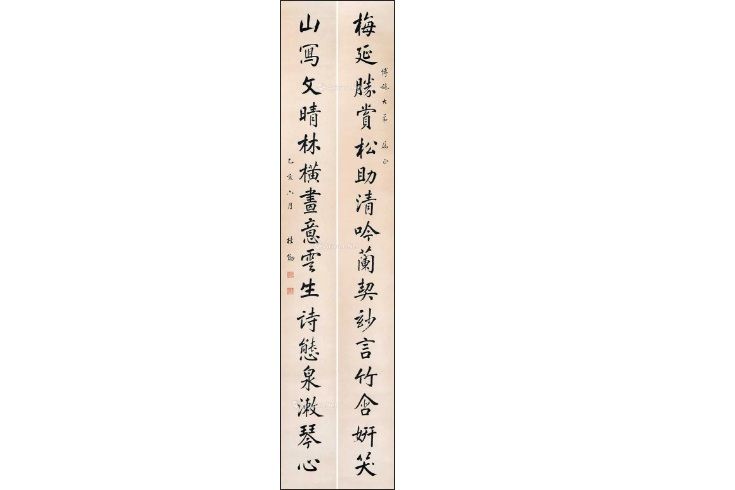 梅延勝賞松助清吟蘭契玅言竹含妍笑
大弟
正
山寫文晴林橫畫意雲生詩態泉漱琴心
乙亥六月